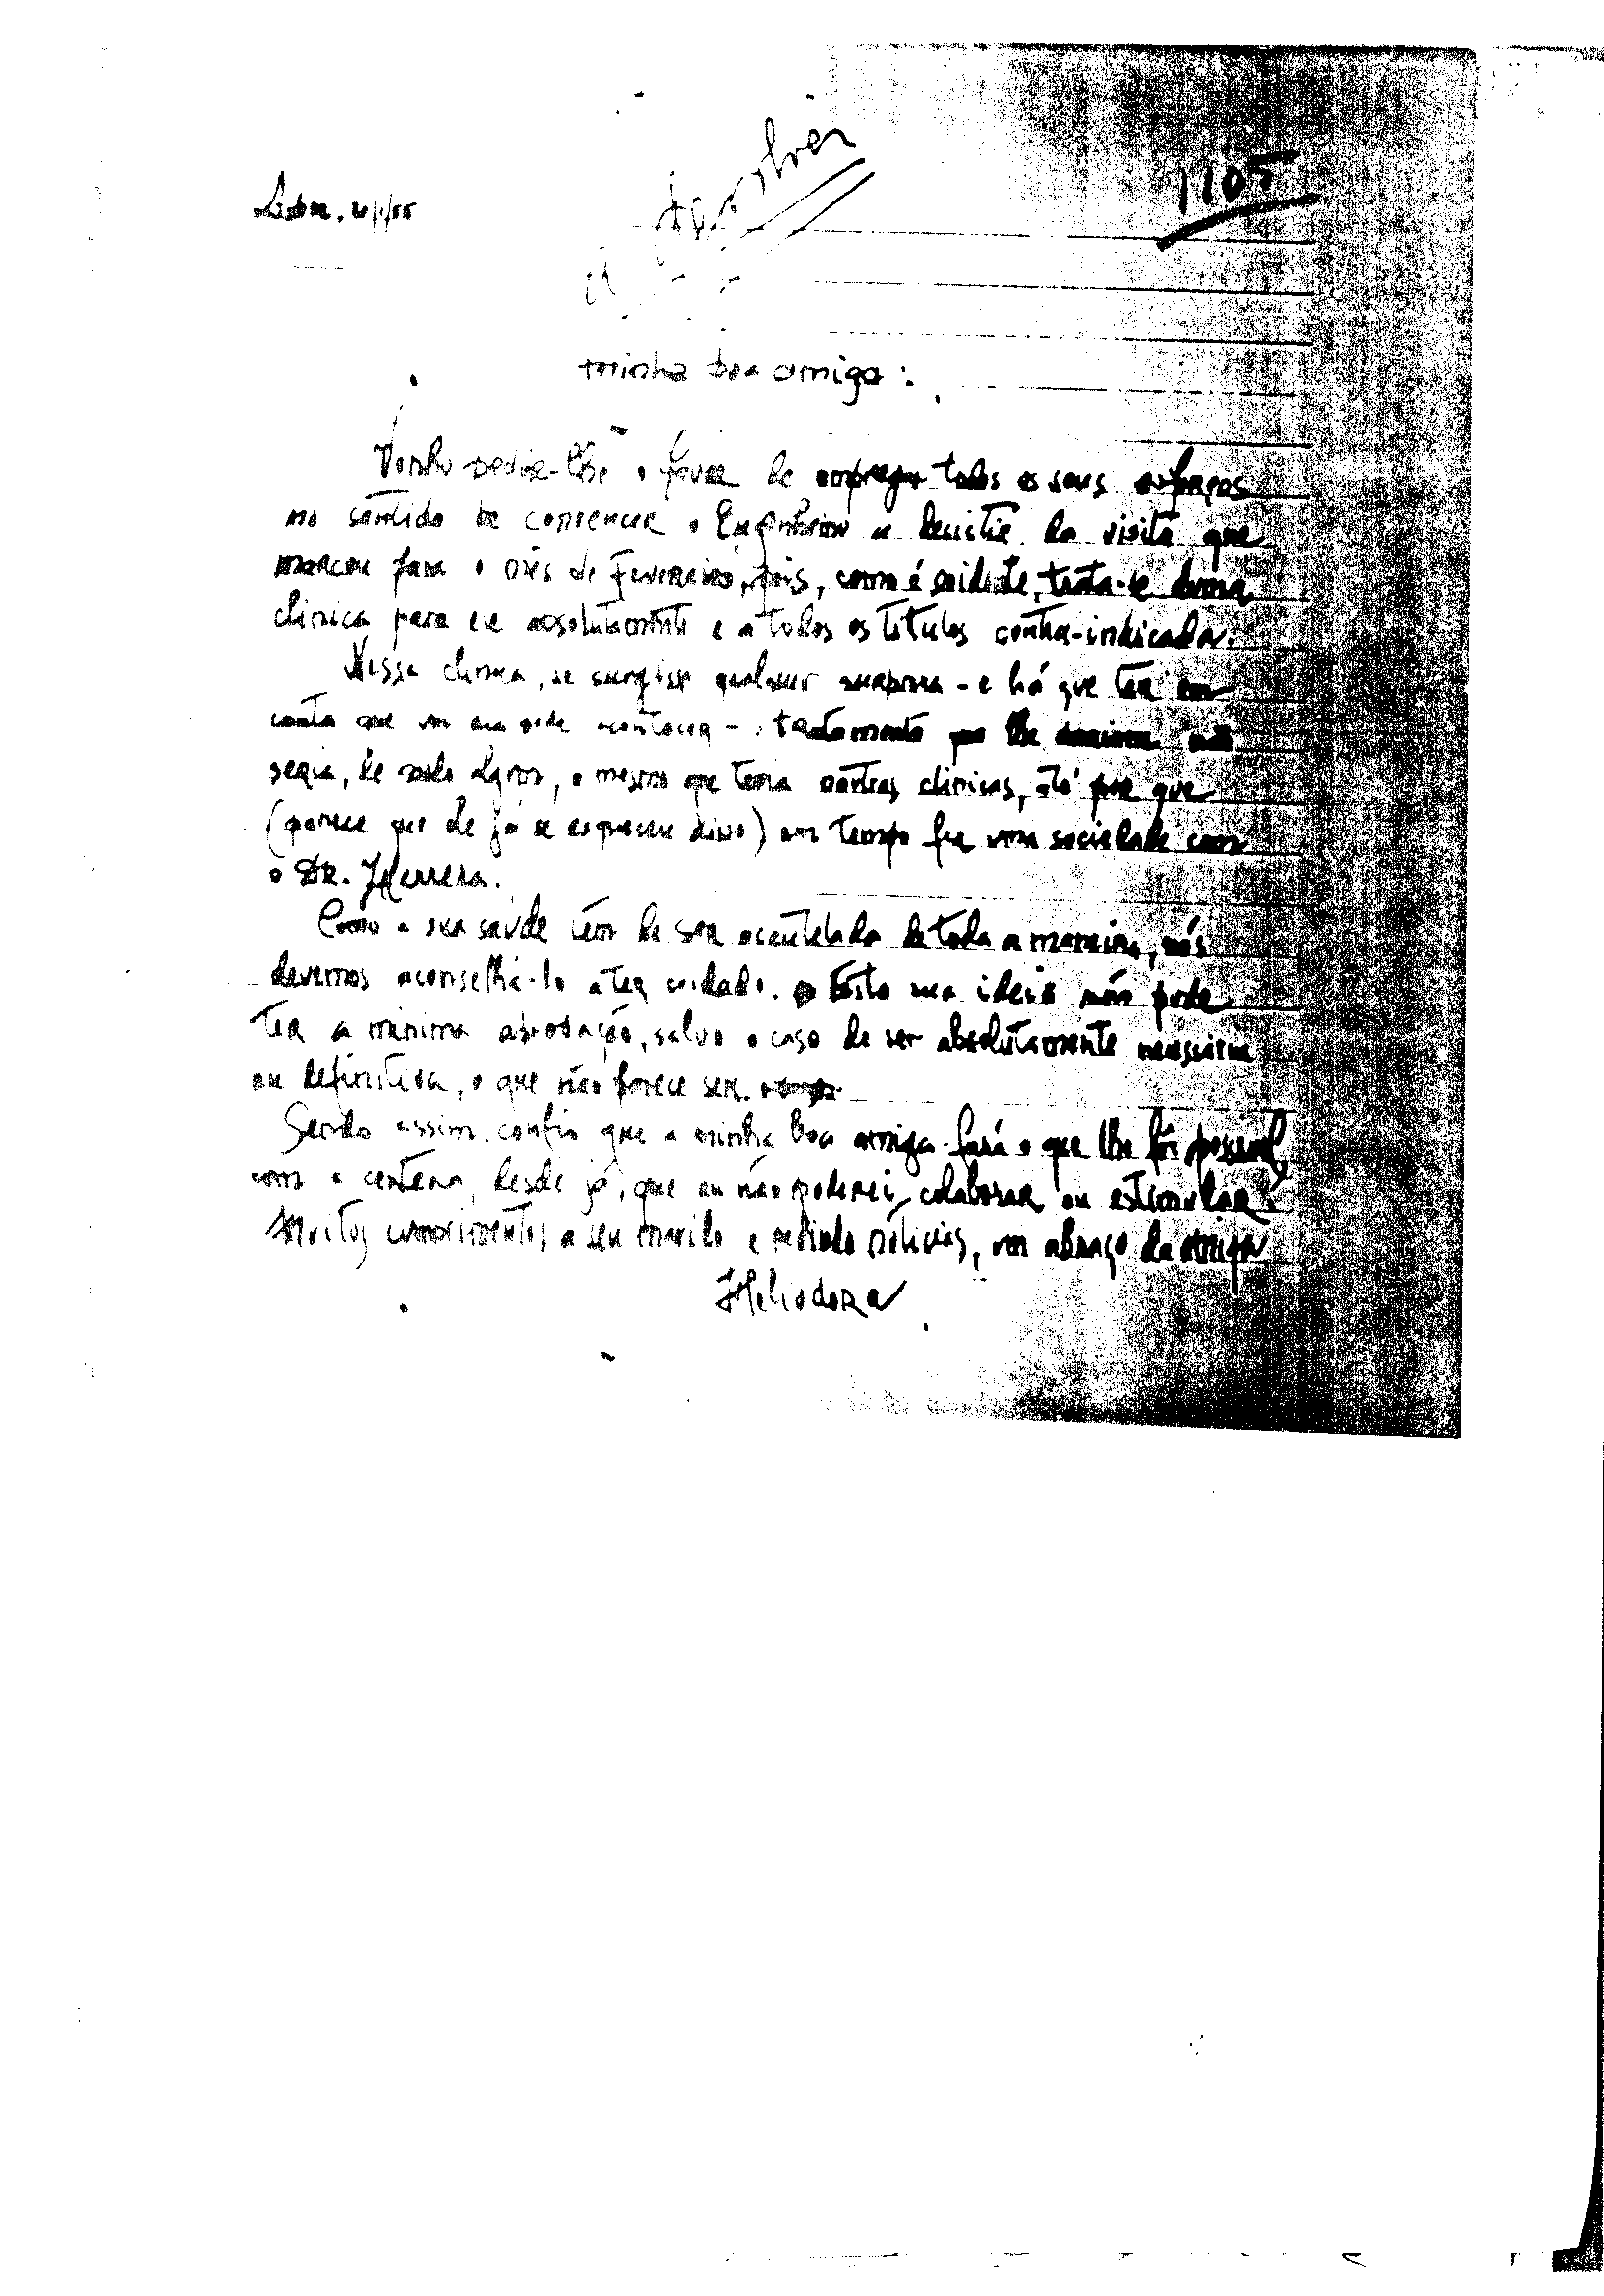 1105
Lisboa,
minha boa amiga:
Venho pedir-lhe o favor de empregar todos os seus esforços
no sentido de convencer o Engenheiro a desistir da visita que
marcou para o mês de Fevereiro, pois, como é evidente, trata-se duma
clinica para ele absolutamente e a todos os titulos contra-indicada.
Nessa clinica, se surgisse qualquer surpresa - e há que ter em
conta que um dia pode acontecer - o tratamento que lhe dariam não
seria, de modo algum, o mesmo que teria noutras clinicas, até por que
(parece que ele já se esqueceu disso) em tempo fez uma sociedade com
o Dr. Herrera.
Como a sua saúde tem de ser acautelada de toda a maneira, nós
devemos aconselhá-lo a ter cuidado. Esta sua ideia não pode
ter a minima aprovação, salvo o caso de ser absolutamente necessária
ou definitiva, o que não parece ser.
Sendo assim, confio que a minha boa amiga fará o que lhe fôr possivel,
com a certeza, desde já, que eu não poderei colaborar ou estimular.
Muitos cumprimentos a seu marido e pedindo noticias, um abraço da amiga
Heliodora